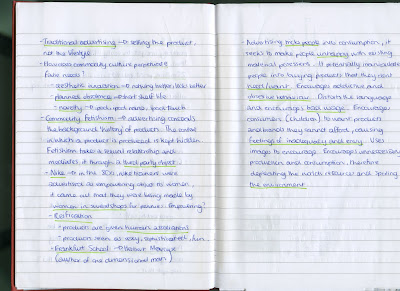 - Traditional advertising → selling the product,
not the lifestyle
- How does commodity culture promote
false needs?
- aesthetic innovation → nothing better, look better
- planned obsolescence → short shelf life
- novelty → quick, good novelty, good launch
- Commodity Fetishism → advertising conceals
the background history of products. The context
in which a product is produced is kept hidden.
Fetishism takes a social relationship and
mediates it through a third party object
- Nike → in the 90s, nike trainers were
advertised as empowering objects to women,
it came out that they were being made by
women in sweatshops for pennies. Empowering?
- Reification
- products are given human associations
- products seen as sexy, romantic, fun.
- Frankfurt School → Herbert Marcuse
(author of one dimensional man)
- Advertising tricks people into consumption, it
seeks to make people unhappy with existing
material possessions. It potentially manipulates
people into buying products that they dont
need/want. Encourages addictive and
obsessive behaviour. Distorts the language
and encourages bad usage. Encourages
consumers (children) to want products
and brands they cannot afford, causing
feelings of inadequacy and envy. Uses
images to encourage. Encourages unnecessary
production and consumption, therefore
depleting the worlds resources and spoiling
the environment